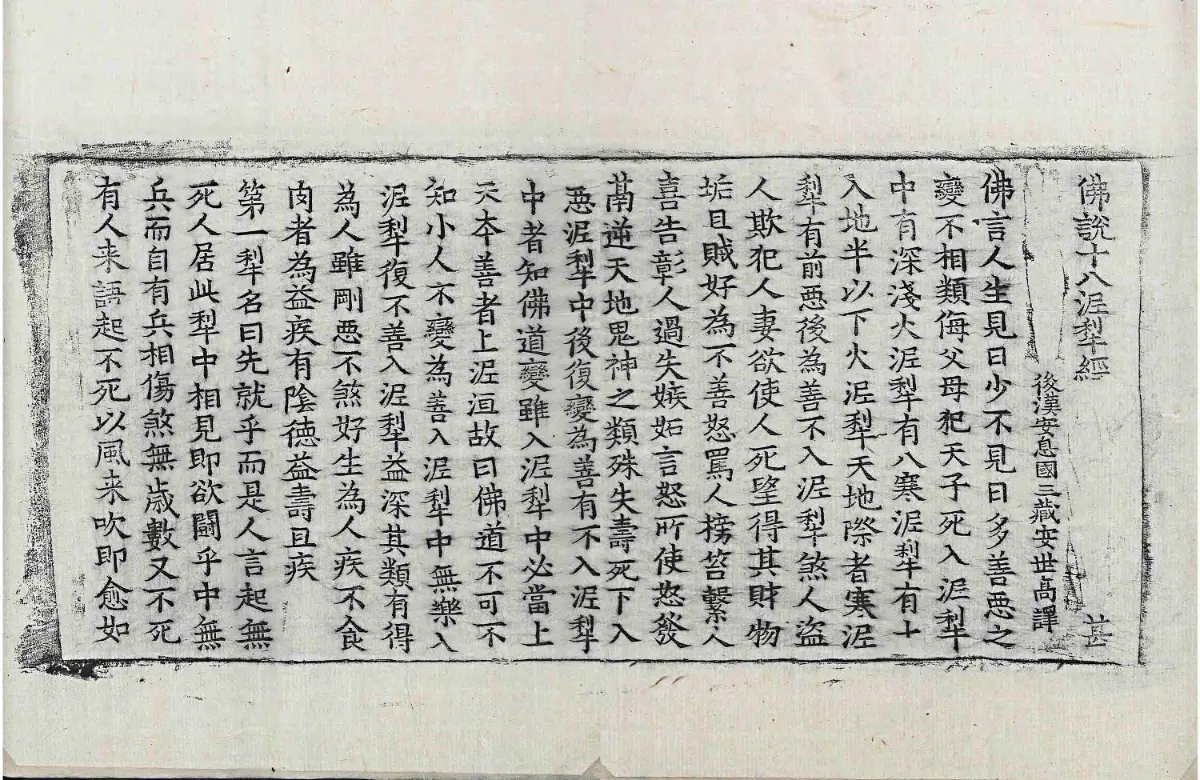 佛說十八泥犁經 甚
後漢安息國三藏安世高譯
佛言人生見日少不見日多善惡之
變不相類侮父母犯天子死入泥犁
中有深淺火泥犁有八寒泥犁有十
入地半以下火泥犁天地際者寒泥
犁有前惡後為善不入泥犁煞人盜
人欺犯人妻欲使人死望得其財物
垢且賊好為不善怒罵人搒笞繫人
喜告彰人過失嫉妬言怒所使怒發
萬逆天地鬼神之類殊失壽死下入
惡泥犁中後復變為善有不入泥犁
中者知佛道變雖入泥犁中必當上
天本善者上泥洹故曰佛道不可不
知小人不變為善入泥犁中無樂入
泥犁復不善入泥犁益深其類有得
為人雖剛惡不煞好生為人疾不食
肉者為益疾有陰徳益壽且疾
第一犁名曰先就乎而是人言起無
死人居此犁中相見即欲鬪乎中無
兵而自有兵相傷煞無歳數又不死
有人来語起不死以風来吹即愈如